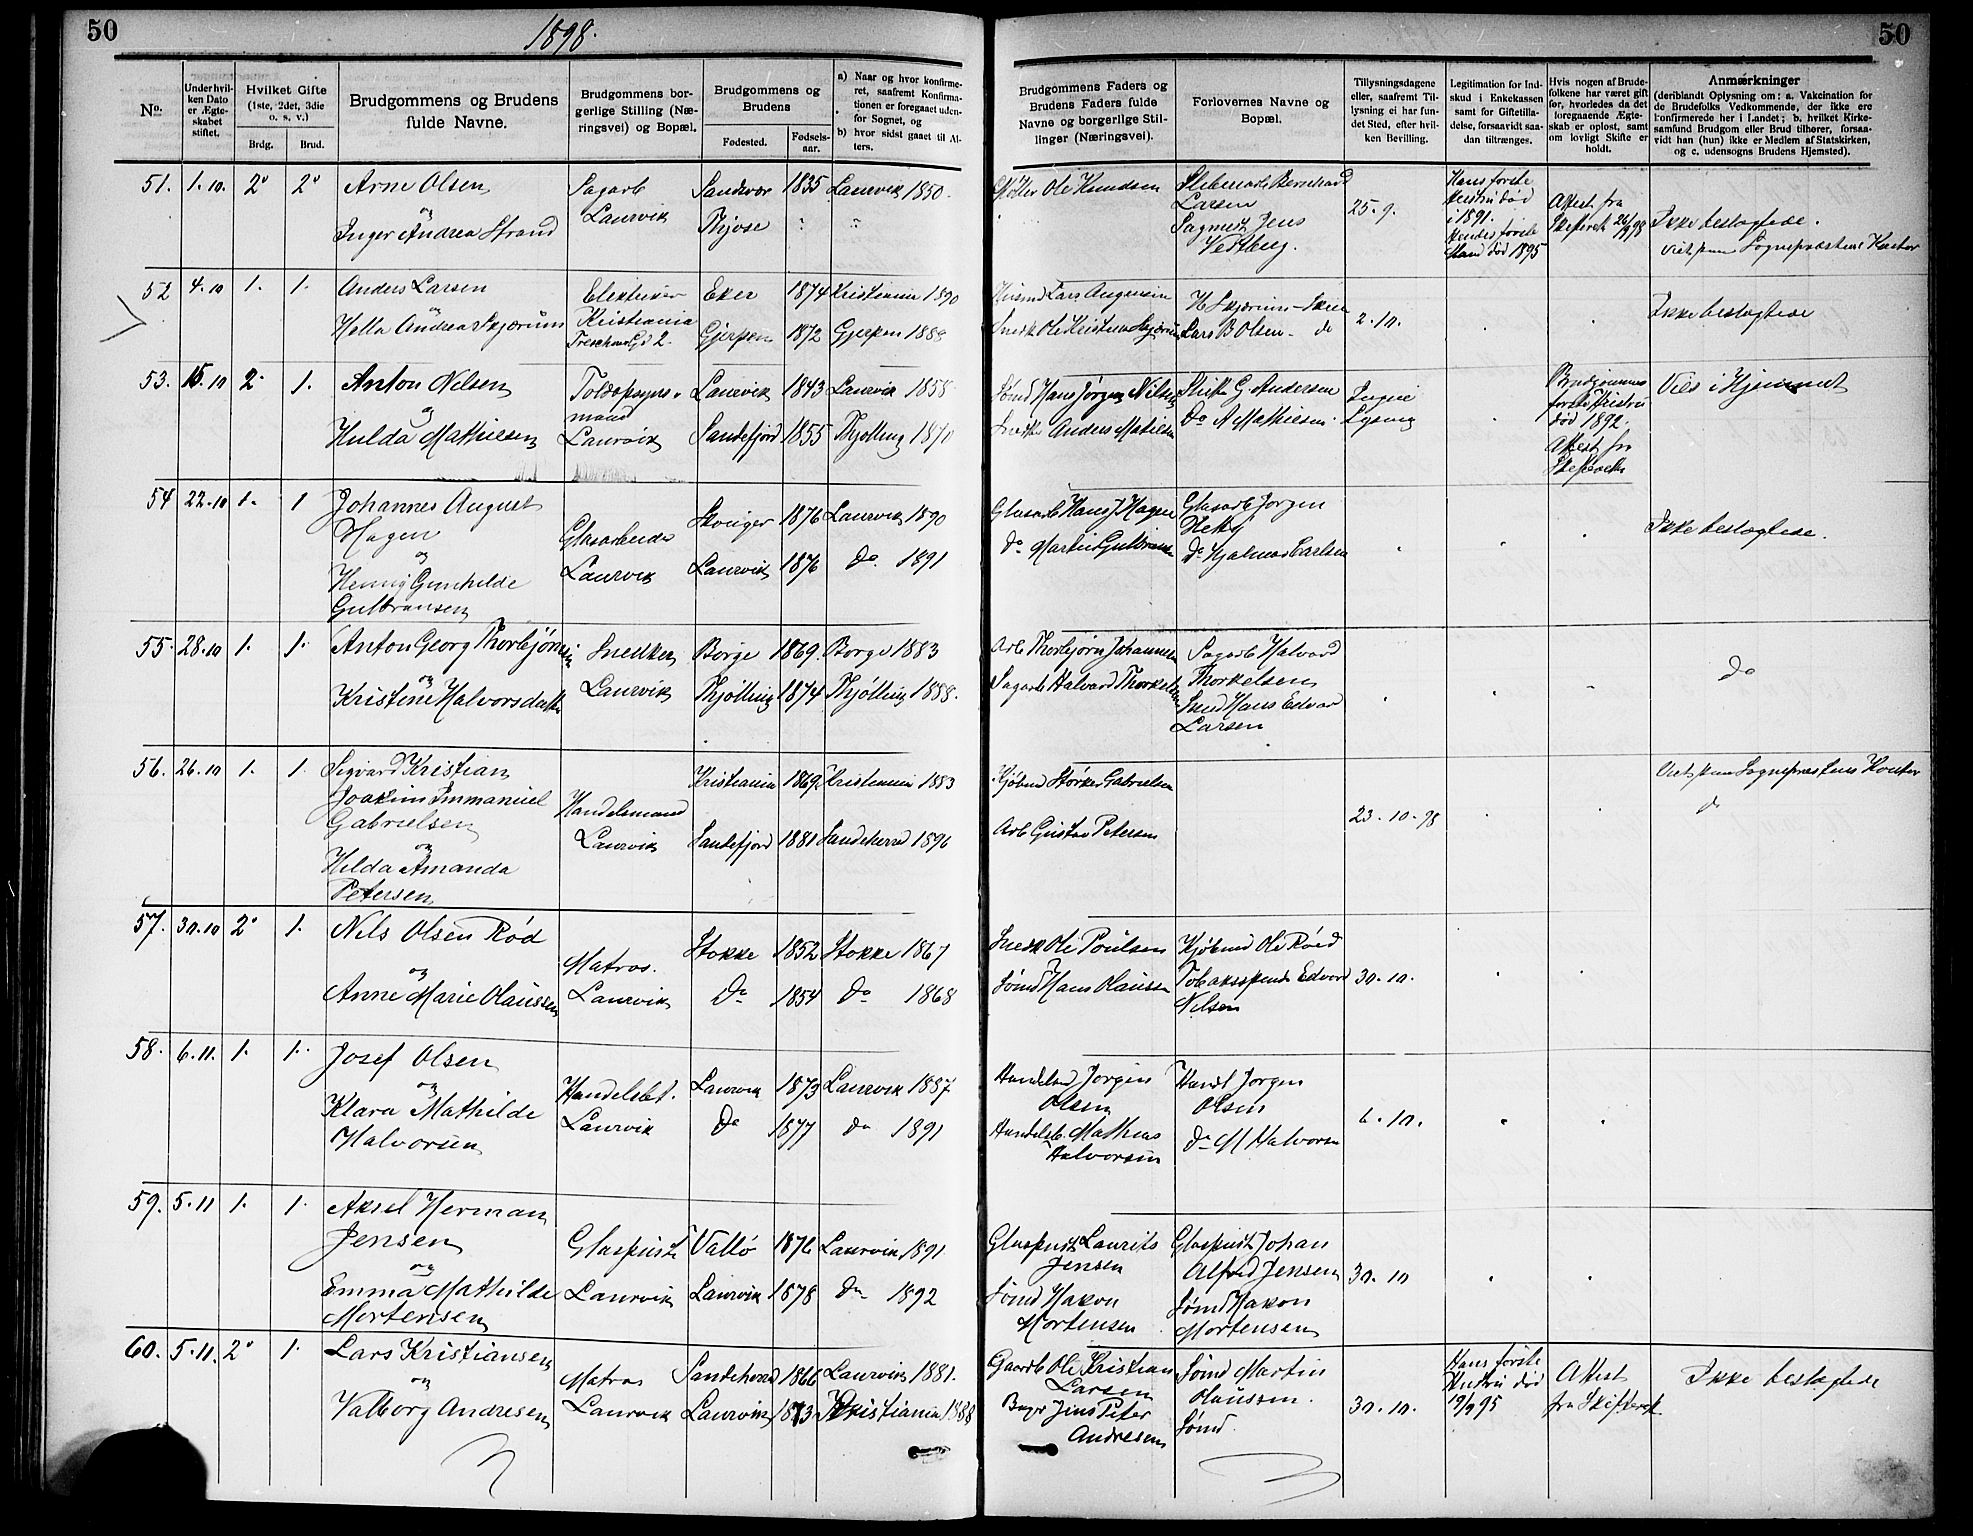 50
1898.
50
No.
Under hvilken Dato er Ægteskabet stiftet.
Hvilket Gifte (1ste, 2det, 3die o. s. v.)
Brdg.
Brud.
Brudgommens og Brudens fulde Navne.
Brudgommens borgerlige Stilling (Næringsvei) og Bopæl.
Brudgommens og Brudens
Fødested.
Fødselsaar.
a) Naar og hvor konfirmeret, saafremt Konfirmationen er foregaaet udenfor Sognet, og
b) hvor sidst gaaet til Alters.
Brudgommens Faders og Brudens Faders fulde Navne og borgerlige Stillinger (Næringsvei).
Forlovernes Navne og Bopæl.
Tillysningsdagene eller, saafremt Tillysning ei har fundet Sted, efter hvilken Bevilling.
Legitimation for Indskud i Enkekassen samt for Giftetilladelse, forsaavidt saadan tiltrænges.
Hvis nogen af Brudefolkene har været gift før, hvorledes da det foregaaende Ægteskab er opløst, samt om lovligt Skifte er holdt.
Anmærkninger
(deriblandt Oplysning om: a. Vakcination for de Brudefolks Vedkommende, der ikke ere konfirmerede her i Landet; b. hvilket Kirkesamfund Brudgom eller Brud tilhører, forsaavidt han (hun) ikke er Medlem af Statskirken, og c. udensogns Brudens Hjemsted).
51. 1.10 2° 2° Arne Olsen Sagarb Sandeher 1835 Laurvik 1850. Ole Knudsen Bernhard
og Laurvik Larsen 25.9.
Inger Andrea Strand Thjose " " Sagmest Jens
Vestberg.
Hans første Hustru død i 1891. Hendes første Mand død 1895
Attest fra Skifteret 26/9 98
Ikke beslægtede.
Viet paa Sognepræstens Kontor
52 4.10 1. 1. Anders Larsen Eker 1874 Kristiania 1890 Husmd Lars
og Kristiania 2.10. Ikke beslægtede
Andrea Skjørum 2 Gjerpen 1872 Gjerpen 1888 Snedk Ole Kristian Skjørum Lars B Olsen - do
53. 15.10 2. 1. Anton Nilsen Toldopsyns- Laurvik 1843 Laurvik 1858 Sømd Hans Jørgen Nilsen G. Andersen Ingen
og mand Lysning
Hulda Mathiesen Laurvik Sandefjord 1855 Thjølling 1870 Anders Do A Mathiesen.
Brudgommens første Hustru død 1892. Attest fra Skifteretten
Viet i Hjemmet
54 22.10 1. 1 Johannes August 1876 Laurvik 1890 Glasarb Hans J Hagen Glasarb Jørgen
Hagen Glasarbeider
og Laurvik Laurvik 1876 Do. 1891 Do Martin Gulbransen Do Hjalmar Carlsen Ikke beslægtede.
Henny Gunhilde
Gulbransen
55. 28.10 1. 1. Anton Georg Thorbjørnsen Snedker Borge 1869. Borge 1883 Arb Thorbjørn Johannesen Sagarb Halvard
og Laurvik Thorkelsen do
Kristine Halvorsdatter Thjølling 1874 Thjølling 1888. Sagarb Halvard Thorkelsen Hans Edvard
Larsen
56. 26.10 1. 1. Sigvard Kristian Kristiania 1869 Kristiania 1883 Kjøbmd Gabrielsen Viet paa Sognepræstens Kontor
Joakim Immanuel Handelsmand do
Gabrielsen Laurvik Sandefjord 1881 Sandeherred 1896 Arb Gustav Petersen 23.10.98
og
Hilda Amanda
Petersen
57. 30.10 2° 1. Nils Olsen Rød Matros. Stokke 1852 Stokke 1867 Snedk Ole Poulsen Kjøbmd Ole Røed
og Laurvik Tobaksspinder Edvard 30.10.
Anne Marie Olaussen Do 1854 Do 1868 Sømd Hans Olaussen Nilsen
58. 6.11. 1. 1. Josef Olsen Handelsbet. Laurvik 1873 Laurvik 1887 Jørgen Handl Jørgen
og Laurvik Olsen Olsen 6.10.
Klara Mathilde Do 1877 do 1891 Handelsb. Mathias Do M Halvorsen
Halvorsen Halvorsen
59. 5.11 1. 1. Aksel Herman
Jensen Glaspuster Vallø 1876 Laurvik 1891 Glaspust Laurits Glaspust Johan
og Jensen Alfred Jensen 30.10
Emma Mathilde Laurvik Laurvik 1878 Do 1892 Sømd Hakon Sømd Hakon
Mortensen Mortensen Mortensen
60. 5.11. 2° 1. Lars Kristiansen Matros Sandeherred 1866 Laurvik 1881. Gaardb Ole Kristian Sømd Martin
og Larsen Olaussen. 30.10.
Valborg Andresen Laurvik Laurvik 1873 Kristiania 1888 Jens Peter Sømd.
Andresen
Hans første Hustru død 19/9 95
Attest fra Skifteret
Ikke beslægtede